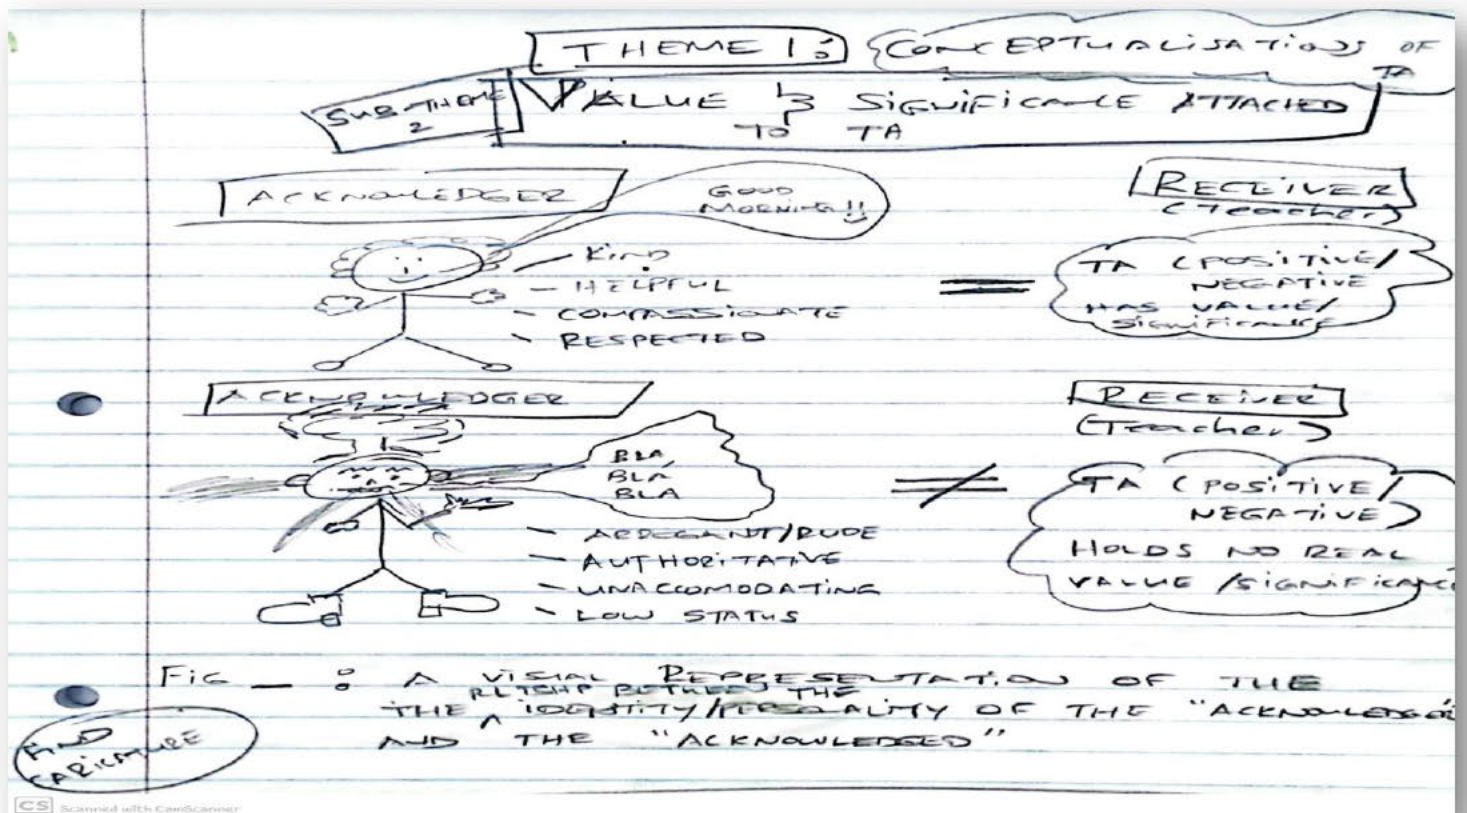 THEME 1: CONCEPTUALISATIONS OF TA
SUB-THEME 2
VALUE & SIGNIFICANCE ATTACHED
TO TA
ACKNOWLEDGER
GOOD
MORNING!!
RECEIVER
(Teacher)
- KIND
- HELPFUL
- COMPASSIONATE
- RESPECTED
=
TA (POSITIVE/
NEGATIVE
HAS VALUE/
SIGNIFICANCE
ACKNOWLEDGER
RECEIVER
(Teacher)
BLA
BLA
BLA
- ARREGANT/RUDE
- AUTHORITATIVE
- UNACCOMODATING
- LOW STATUS
≠
TA (POSITIVE/
NEGATIVE)
HOLDS NO REAL
VALUE/SIGNIFICANCE
FIG _ : A VISUAL REPRESENTATION OF THE
RLTSHP BETWEEN THE
THE ^ IDENTITY/PERSONALITY OF THE "ACKNOWLEDGER
AND THE "ACKNOWLEDGED"
FIND
CARICATURE
CS Scanned with CamScanner